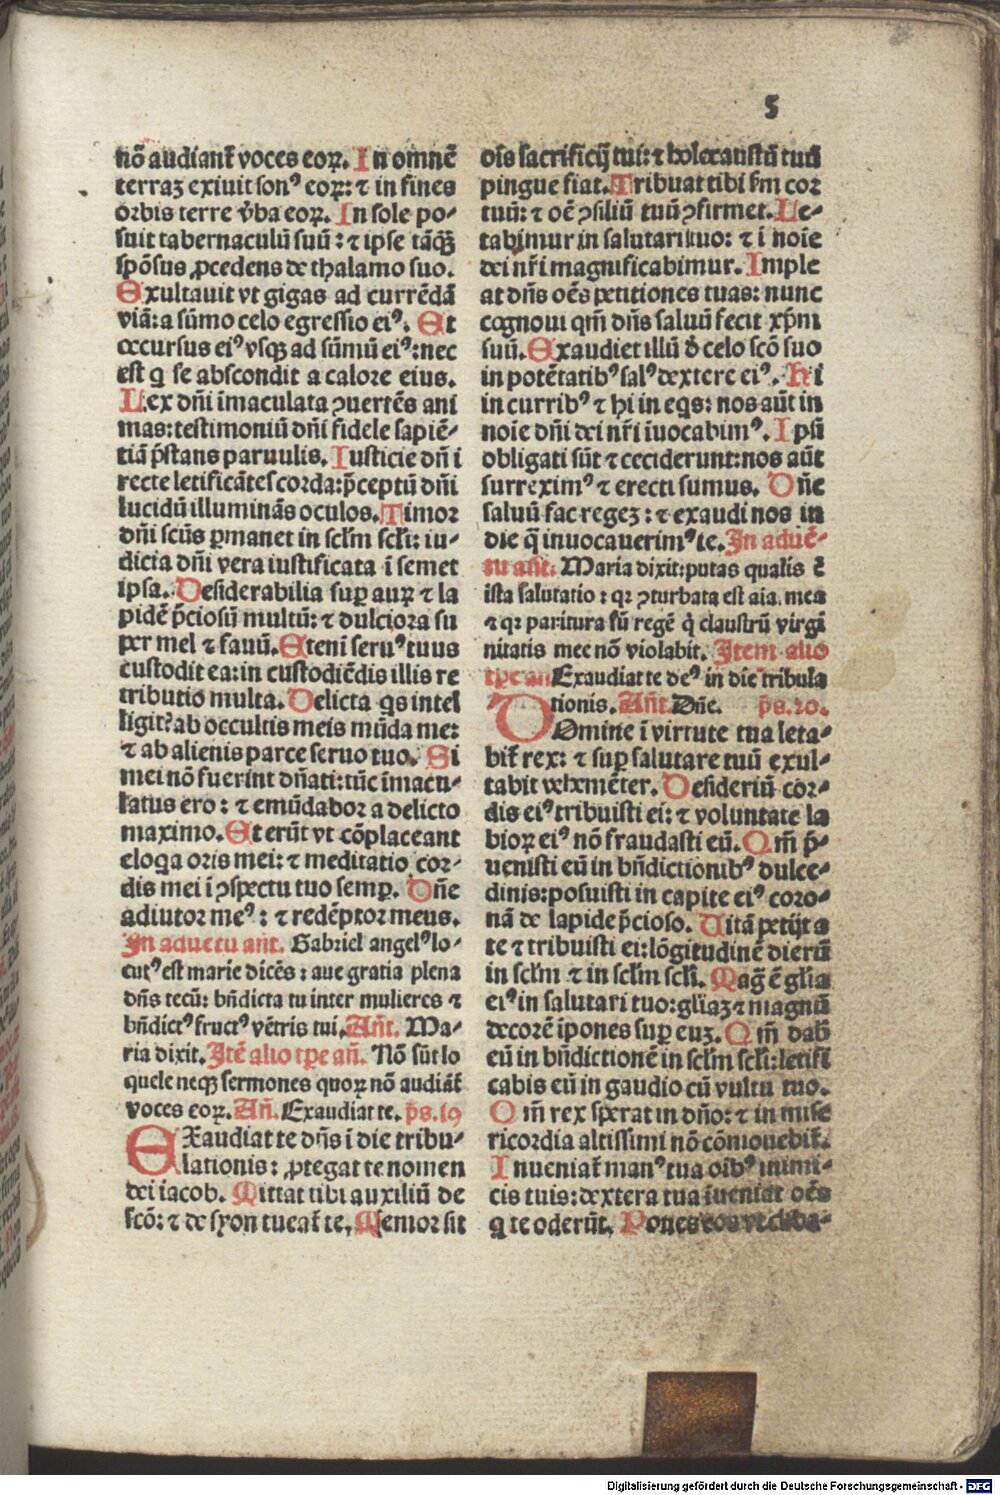 5
nõ audiant᷑ voces eoꝝ. In omnẽ
terraʒ exiuit sonꝰ eoꝝ: ⁊ in fines
orbis terre ỽba eoꝝ. In sole po⸗
suit tabernaculũ suũ: ⁊ ipse tãqꝫ̃
spõsus ꝓcedens de thalamo suo.
Exultauit vt gigas ad currẽdã
viã: a sũmo celo egressio eiꝰ. Et
occursus eiꝰ vsqꝫ ad sũmũ eiꝰ: nec
est q se abscondit a calore eius.
Lex dñi ĩmaculata ꝯuertẽs ani
mas: testimoniũ dñi fidele sapiẽ⸗
tiã p̃stans paruulis. Iusticie dñ i
recte letificãtes corda: p̃ceptũ dñi
lucidũ illuminãs oculos. Timor
dñi scũs ꝑmanet in scl̃m scl̃i: iu⸗
dicia dñi vera iustificata ĩ semet
ipsa. Desiderabilia suꝑ auꝝ ⁊ la
pidẽ p̃ciosũ multũ: ⁊ dulciora su
per mel ⁊ fauũ. Eteni seruꝰ tuus
custodit ea: in custodiẽdis illis re
tributio multa. Delicta qs intel
ligit? ab occultis meis mũda me:
⁊ ab alienis parce seruo tuo. Si
mei nõ fuerint dñati: tũc ĩmacu⸗
latus ero: ⁊ emũdabor a delicto
maximo. Et erũt vt cõplaceant
eloqa oris mei: ⁊ meditatio cor⸗
dis mei ĩ ꝯspectu tuo semꝑ. Dñe
adiutor meꝰ: ⁊ redẽptor meus.
In aduetu añt. Gabriel angelꝰ lo⸗
cutꝰ est marie dicẽs: aue gratia plena
dñs tecũ: bñdicta tu inter mulieres ⁊
bñdictꝰ fructꝰ vẽtris tui. Añt. Ma⸗
ria dixit. Itẽ alio tꝑe añ. Nõ sũt lo
quele neqꝫ sermones quoꝝ nõ audiãt᷑
voces eoꝝ. Añ. Exaudiat te. p̄s. 19
EXaudiat te dñs ĩ die tribu⸗
lationis: ꝓtegat te nomen
dei iacob. Mittat tibi auxiliũ de
scõ: ⁊ de syon tueat᷑ te. Memor sit
oĩs sacrificij tui: ⁊ holocaustũ tuũ
pingue fiat. Tribuat tibi ẜm cor
tuũ: ⁊ oẽ ꝯsiliũ tuũ ꝯfirmet. Le⸗
tabimur in salutari tuo: ⁊ ĩ noĩe
dei nr̃i magnificabimur. Imple
at dñs oẽs petitiones tuas: nunc
cognoui qm̃ dñs saluũ fecit xp̃m
suũ. Exaudiet illũ đ celo scõ suo
in potẽtatibꝰ salꝰ dextere eiꝰ. Hi
in curribꝰ ⁊ hi in eqs: nos aũt in
noĩe dñi dei nr̃i ĩuocabimꝰ. Ipsi
obligati sũt ⁊ ceciderunt: nos aũt
surreximꝰ ⁊ erecti sumus. Dñe
saluũ fac regeʒ: ⁊ exaudi nos in
die q̃ inuocauerimꝰ te. In aduẽ⸗
tu añt. Maria dixit: putas qualis ẽ
ista salutatio: qꝛ ꝯturbata est aĩa mea
⁊ qꝛ paritura sũ regẽ q̇ claustrũ virgi
nitatis mee nõ violabit. Item alio
tꝑe an̄ Exaudiat te deꝰ in die tribula
tionis. Añt. Dñe. p̄s. 20.
DOmine ĩ virtute tua leta⸗
bit᷑ rex: ⁊ suꝑ salutare tuũ exul⸗
tabit vehemẽter. Desideriũ cor⸗
dis eiꝰ tribuisti ei: ⁊ voluntate la
bioꝝ eiꝰ nõ fraudasti eũ. Qm̃ p̃⸗
uenisti eũ in bñdictionibꝰ dulce⸗
dinis: posuisti in capite eiꝰ coro⸗
nã de lapide p̃cioso. Uitã petijt a
te ⁊ tribuisti ei: lõgitudinẽ dierũ
in scl̃m ⁊ in scl̃m scl̃i. Mag̃ ẽ gl̃ia
eiꝰ in salutari tuo: gl̃iaʒ ⁊ magnũ
decorẽ ĩpones suꝑ euʒ. Qm̃ dab̃
eũ in bñdictionẽ in scl̃m scl̃i: letifi
cabis eũ in gaudio cũ vultu tuo.
Qm̃ rex sperat in dño: ⁊ in mise
ricordia altissimi nõ cõmouebit᷑.
Inueniat᷑ manꝰ tua oĩbꝰ inimi⸗
cis tuis: dextera tua ĩueniat oẽs
q te oderũt. Pones eos vt cliba⸗
Digitalisierung gefördert durch die Deutsche Forschungsgemeinschaft - DFG